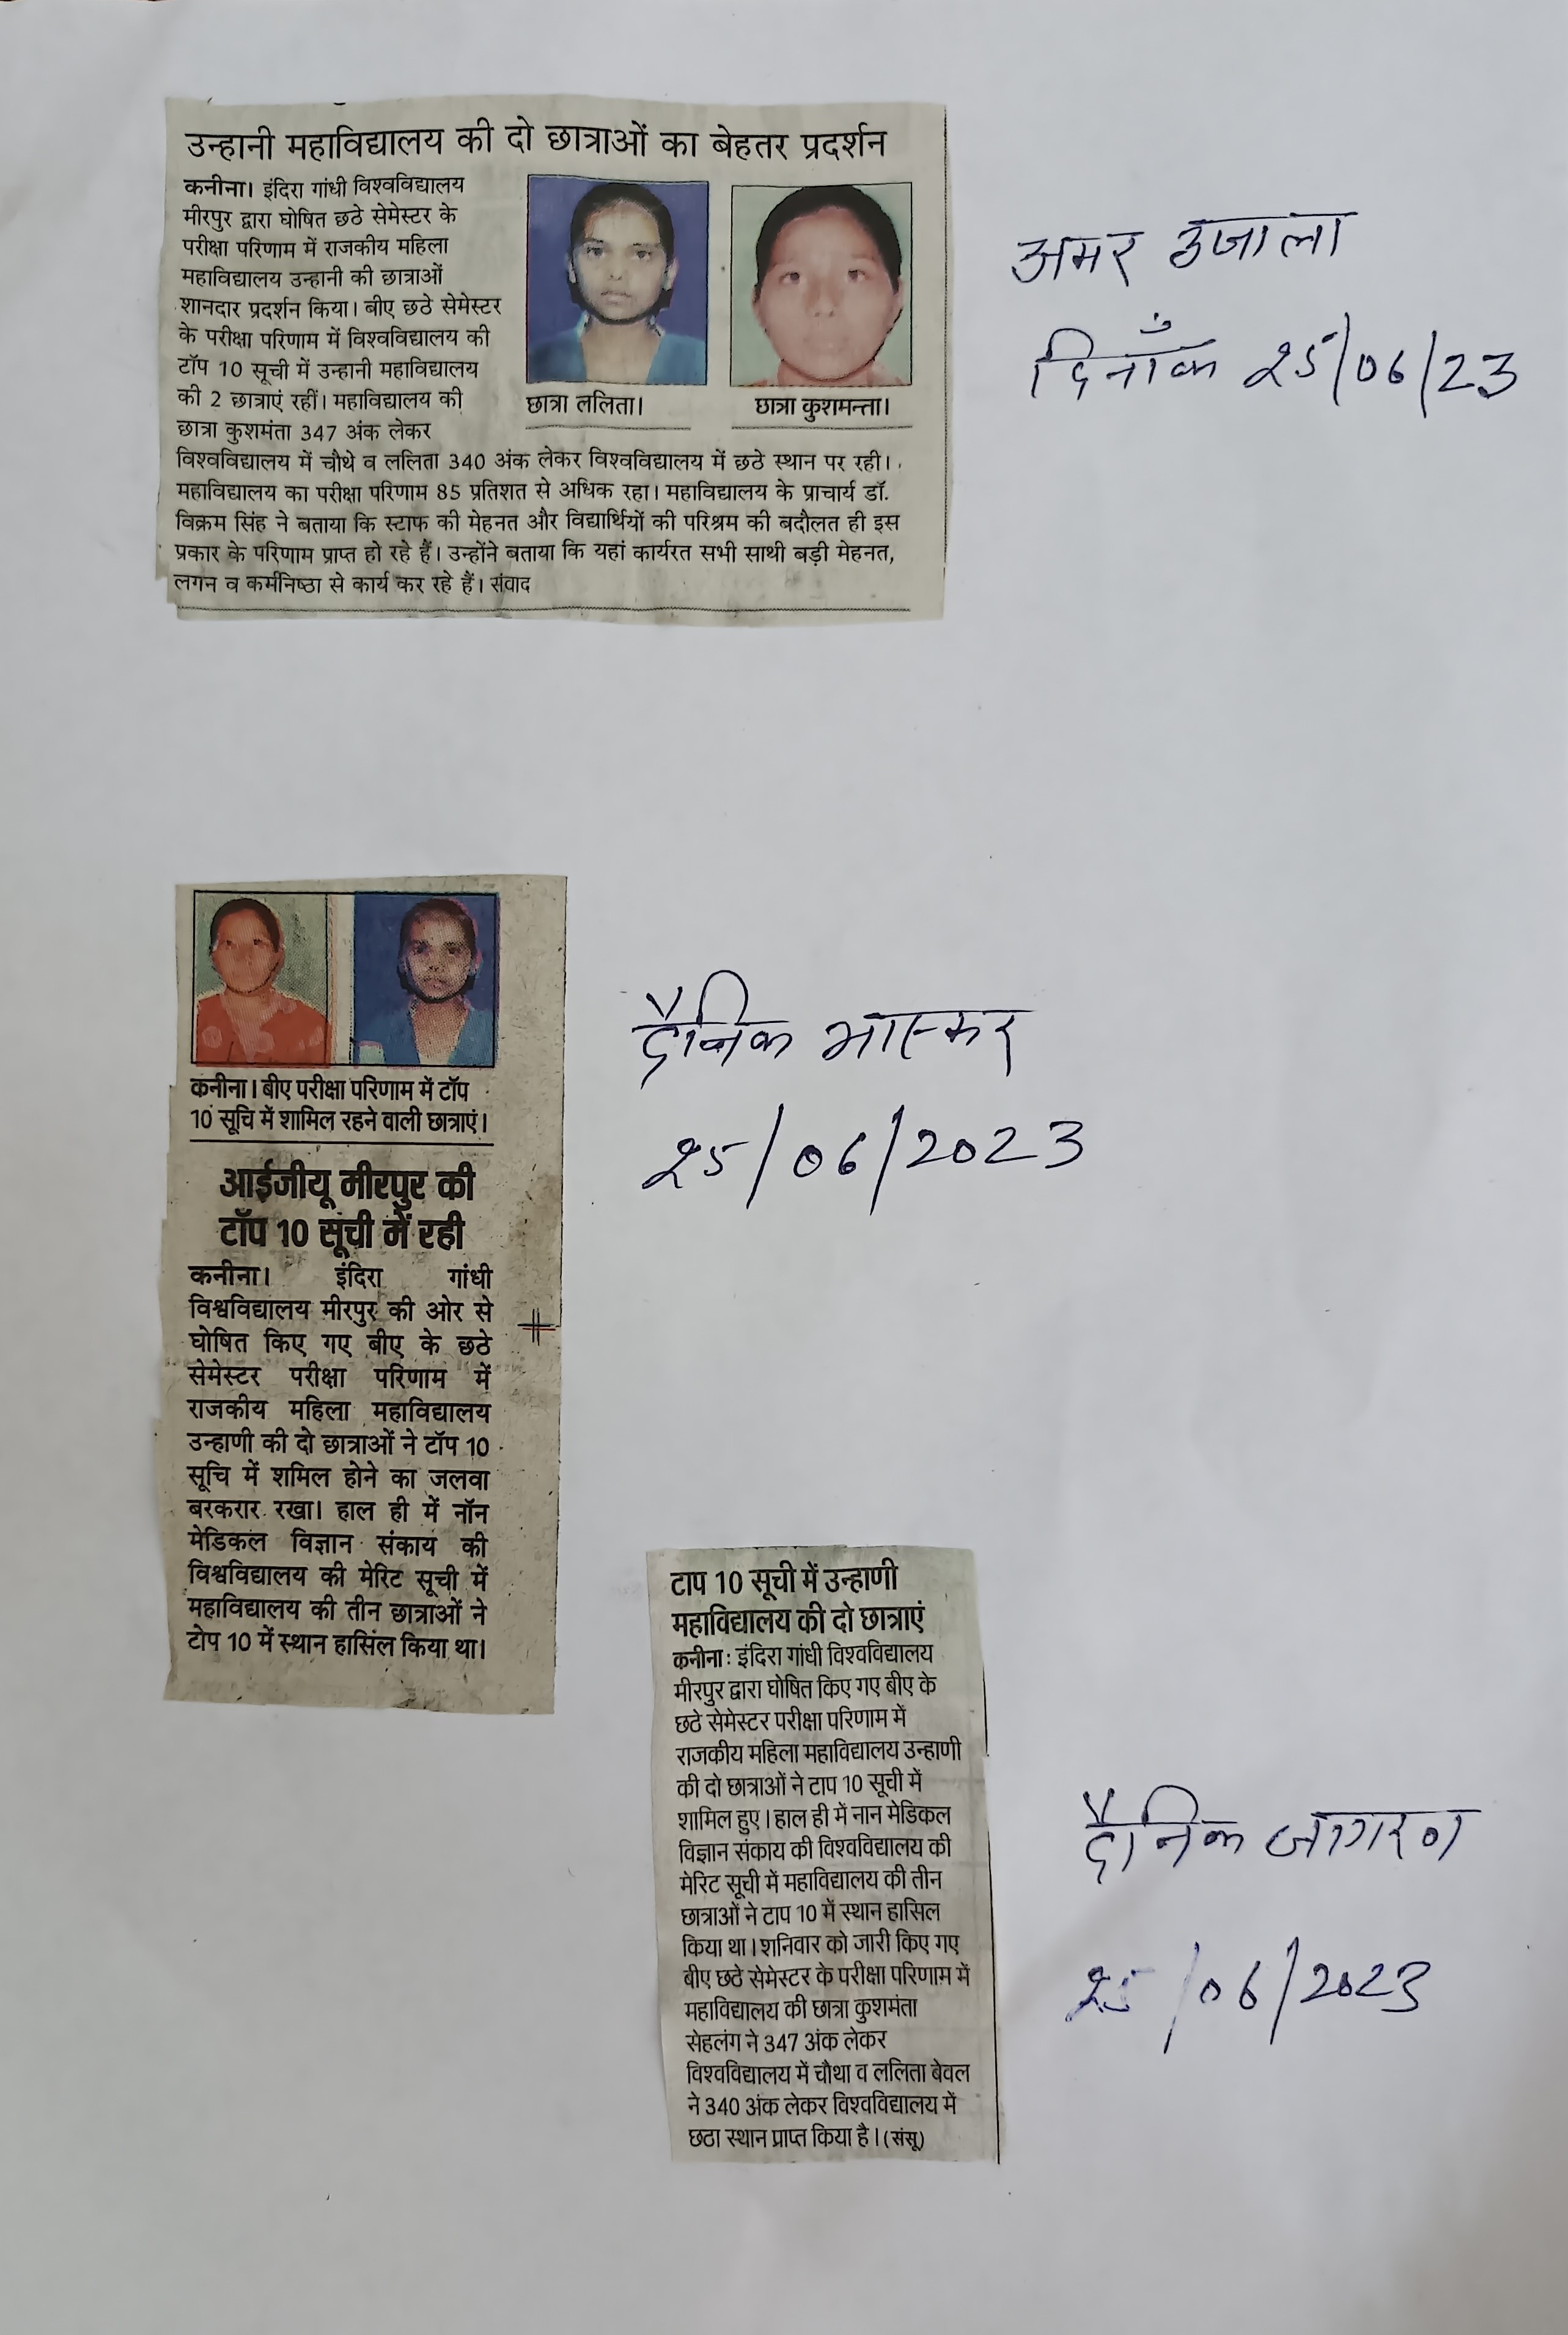 उन्हानी महाविद्यालय की दो छात्राओं का बेहतर प्रदर्शन
कनीना। इंदिरा गांधी विश्वविद्यालय
मीरपुर द्वारा घोषित छठे सेमेस्टर के
परीक्षा परिणाम में राजकीय महिला
महाविद्यालय उन्हानी की छात्राओं
शानदार प्रदर्शन किया। बीए छठे सेमेस्टर
के परीक्षा परिणाम में विश्वविद्यालय की
टॉप 10 सूची में उन्हानी महाविद्यालय
की 2 छात्राएं रहीं। महाविद्यालय की
छात्रा कुशमंता 347 अंक लेकर
विश्वविद्यालय में चौथे व ललिता 340 अंक लेकर विश्वविद्यालय में छठे स्थान पर रही।
महाविद्यालय का परीक्षा परिणाम 85 प्रतिशत से अधिक रहा। महाविद्यालय के प्राचार्य डॉ.
विक्रम सिंह ने बताया कि स्टाफ की मेहनत और विद्यार्थियों की परिश्रम की बदौलत ही इस
प्रकार के परिणाम प्राप्त हो रहे हैं। उन्होंने बताया कि यहां कार्यरत सभी साथी बड़ी मेहनत,
लगन व कर्मनिष्ठा से कार्य कर रहे हैं। संवाद
छात्रा ललिता।
छात्रा कुशमन्ता।
अमर उजाला
दिनाँक 25/06/23
कनीना। बीए परीक्षा परिणाम में टॉप
10 सूचि में शामिल रहने वाली छात्राएं।
आईजीयू मीरपुर की
टॉप 10 सूची में रही
कनीना। इंदिरा गांधी
विश्वविद्यालय मीरपुर की ओर से
घोषित किए गए बीए के छठे
सेमेस्टर परीक्षा परिणाम में
राजकीय महिला महाविद्यालय
उन्हाणी की दो छात्राओं ने टॉप 10
सूचि में शमिल होने का जलवा
बरकरार रखा। हाल ही में नॉन
मेडिकल विज्ञान संकाय की
विश्वविद्यालय की मेरिट सूची में
महाविद्यालय की तीन छात्राओं ने
टोप 10 में स्थान हासिल किया था।
दैनिक भास्कर
25/06/2023
टाप 10 सूची में उन्हाणी
महाविद्यालय की दो छात्राएं
कनीना: इंदिरा गांधी विश्वविद्यालय
मीरपुर द्वारा घोषित किए गए बीए के
छठे सेमेस्टर परीक्षा परिणाम में
राजकीय महिला महाविद्यालय उन्हाणी
की दो छात्राओं ने टाप 10 सूची में
शामिल हुए। हाल ही में नान मेडिकल
विज्ञान संकाय की विश्वविद्यालय की
मेरिट सूची में महाविद्यालय की तीन
छात्राओं ने टाप 10 में स्थान हासिल
किया था। शनिवार को जारी किए गए
बीए छठे सेमेस्टर के परीक्षा परिणाम में
महाविद्यालय की छात्रा कुशमंता
सेहलंग ने 347 अंक लेकर
विश्वविद्यालय में चौथा व ललिता बेवल
ने 340 अंक लेकर विश्वविद्यालय में
छठा स्थान प्राप्त किया है। (संसू)
दैनिक जागरण
25/06/2023